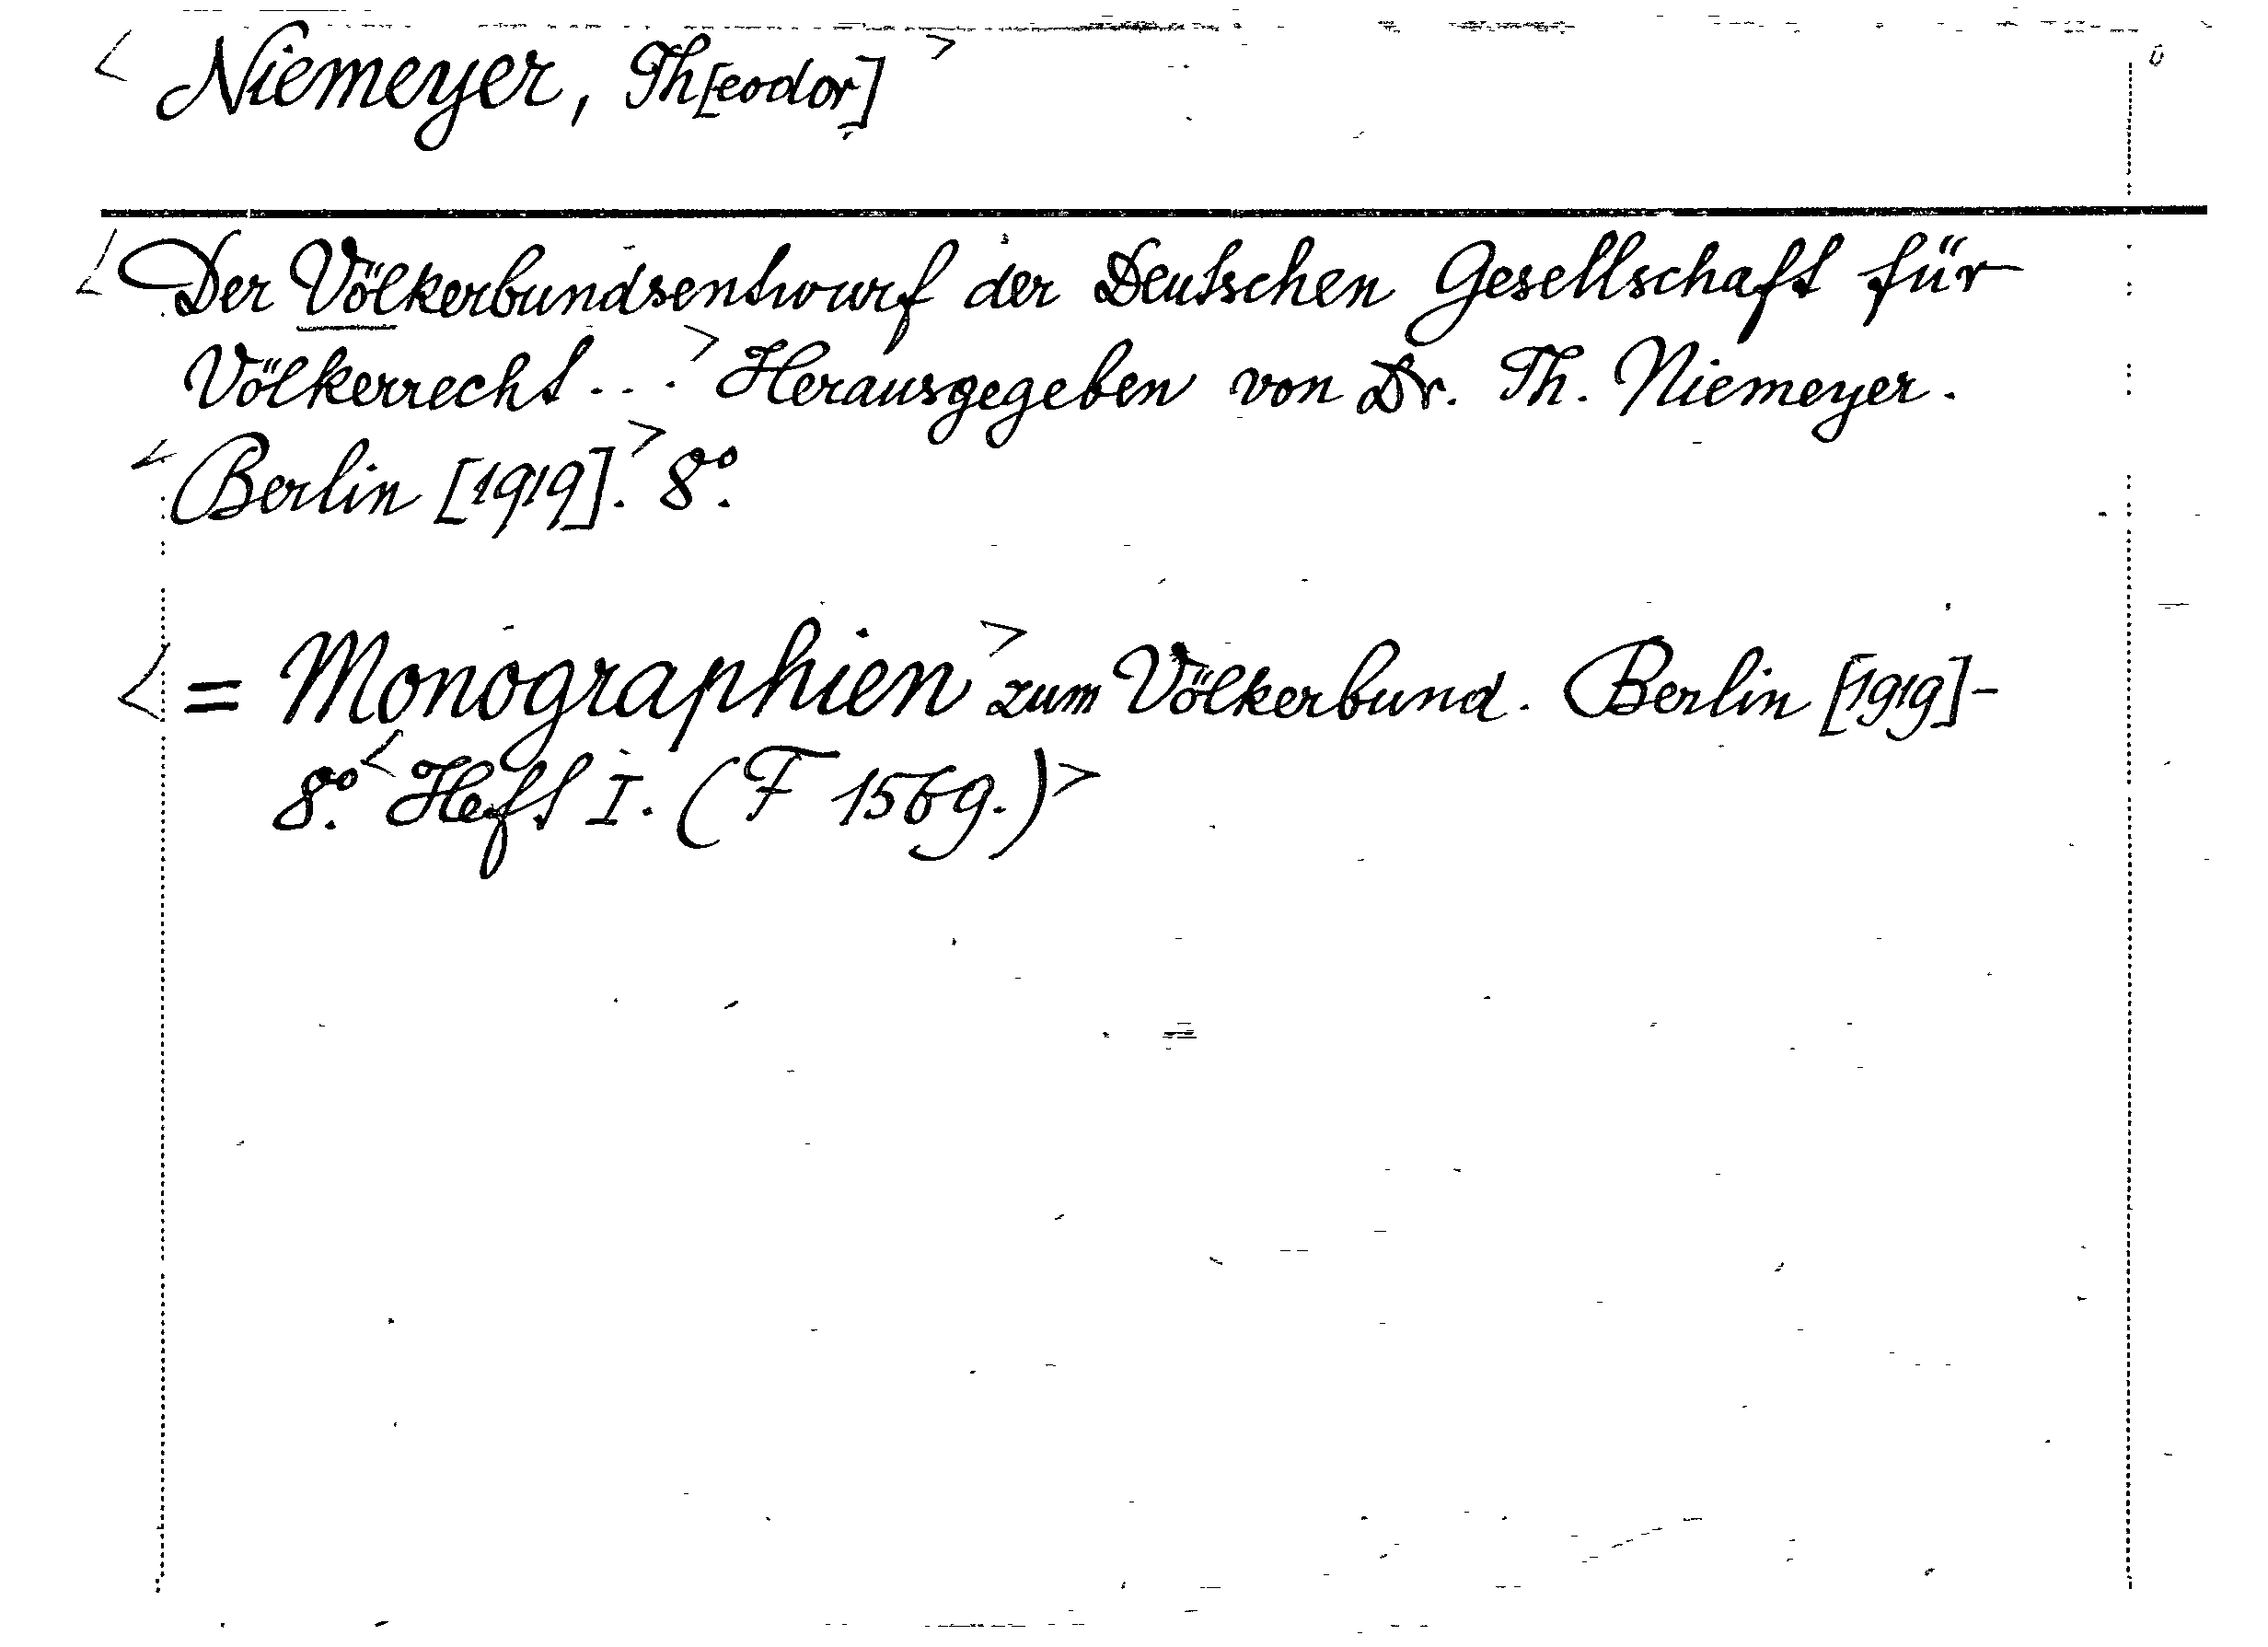 < Niemeyer, Th[eodor] >
< Der Völkerbundsentwurf der Deutschen Gesellschaft für
Völkerrecht ... > Herausgegeben von Dr. Th. Niemeyer.
< Berlin [1919]. > 8º.
< = Monographien > zum Völkerbund. Berlin [1919]-
8º. < Heft I. (F 1569.) >